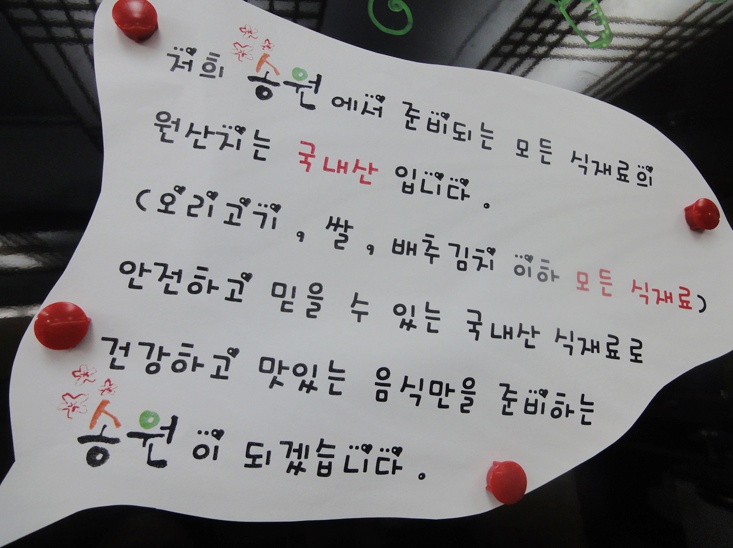 저희 송원에서 준비되는 모든 식재료의
원산지는 국내산 입니다.
(오리고기, 쌀, 배추김치 이하 모든 식재료)
안전하고 믿을 수 있는 국내산 식재료로
건강하고 맛있는 음식만을 준비하는
송원이 되겠습니다.